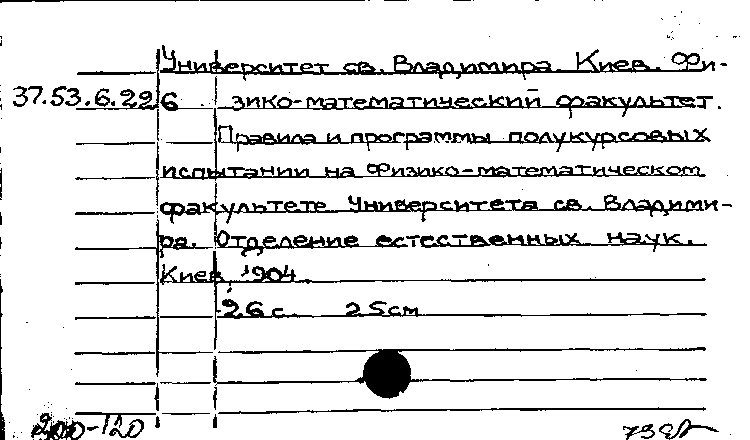 Университет св. Владимира. Киев. Фи-
37.53.6.226 зико-математический факультет.
Правила и программы полукурсовых
испытании на Физико-математическом
факультете Университета св. Владими-
ра. Отделение естественных наук.
Киев, 1904.
26 с. 25см
200-120